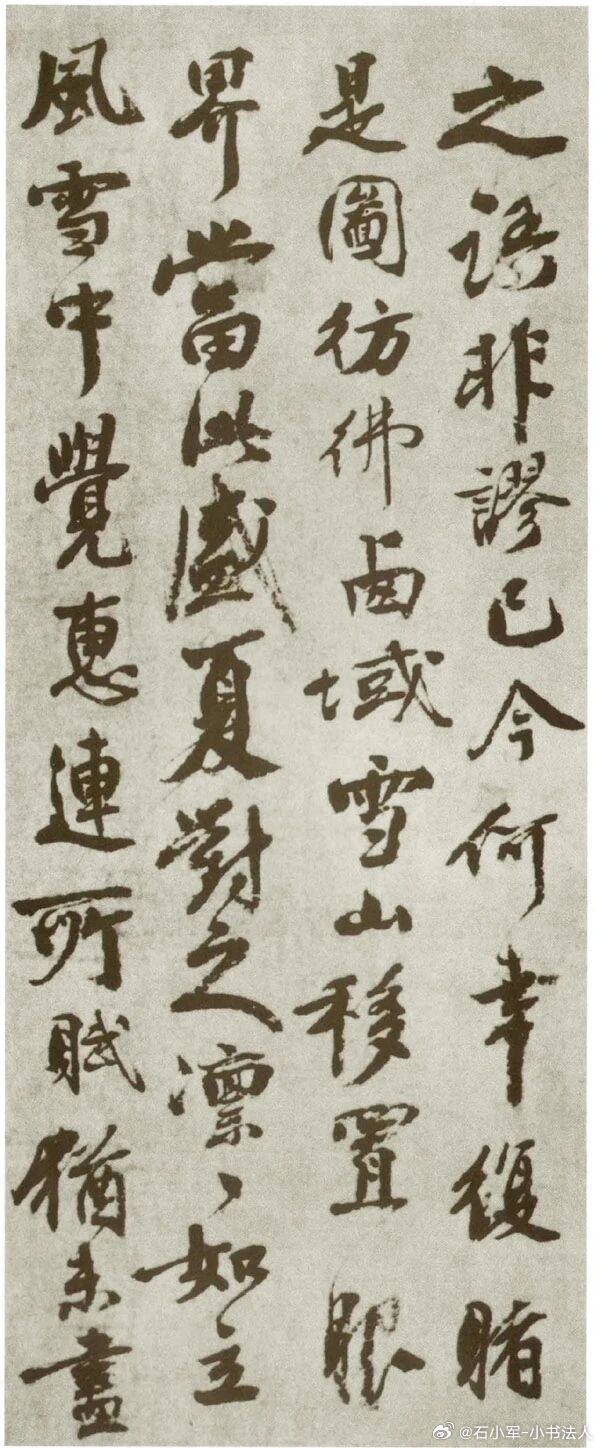 之語非謬已今何幸復睹
是圖彷彿鹵域雪山移置眼
界當此盛夏對之凛〻如立
風雪中覺惠連所賦猶未盡
@石小军-小书法人